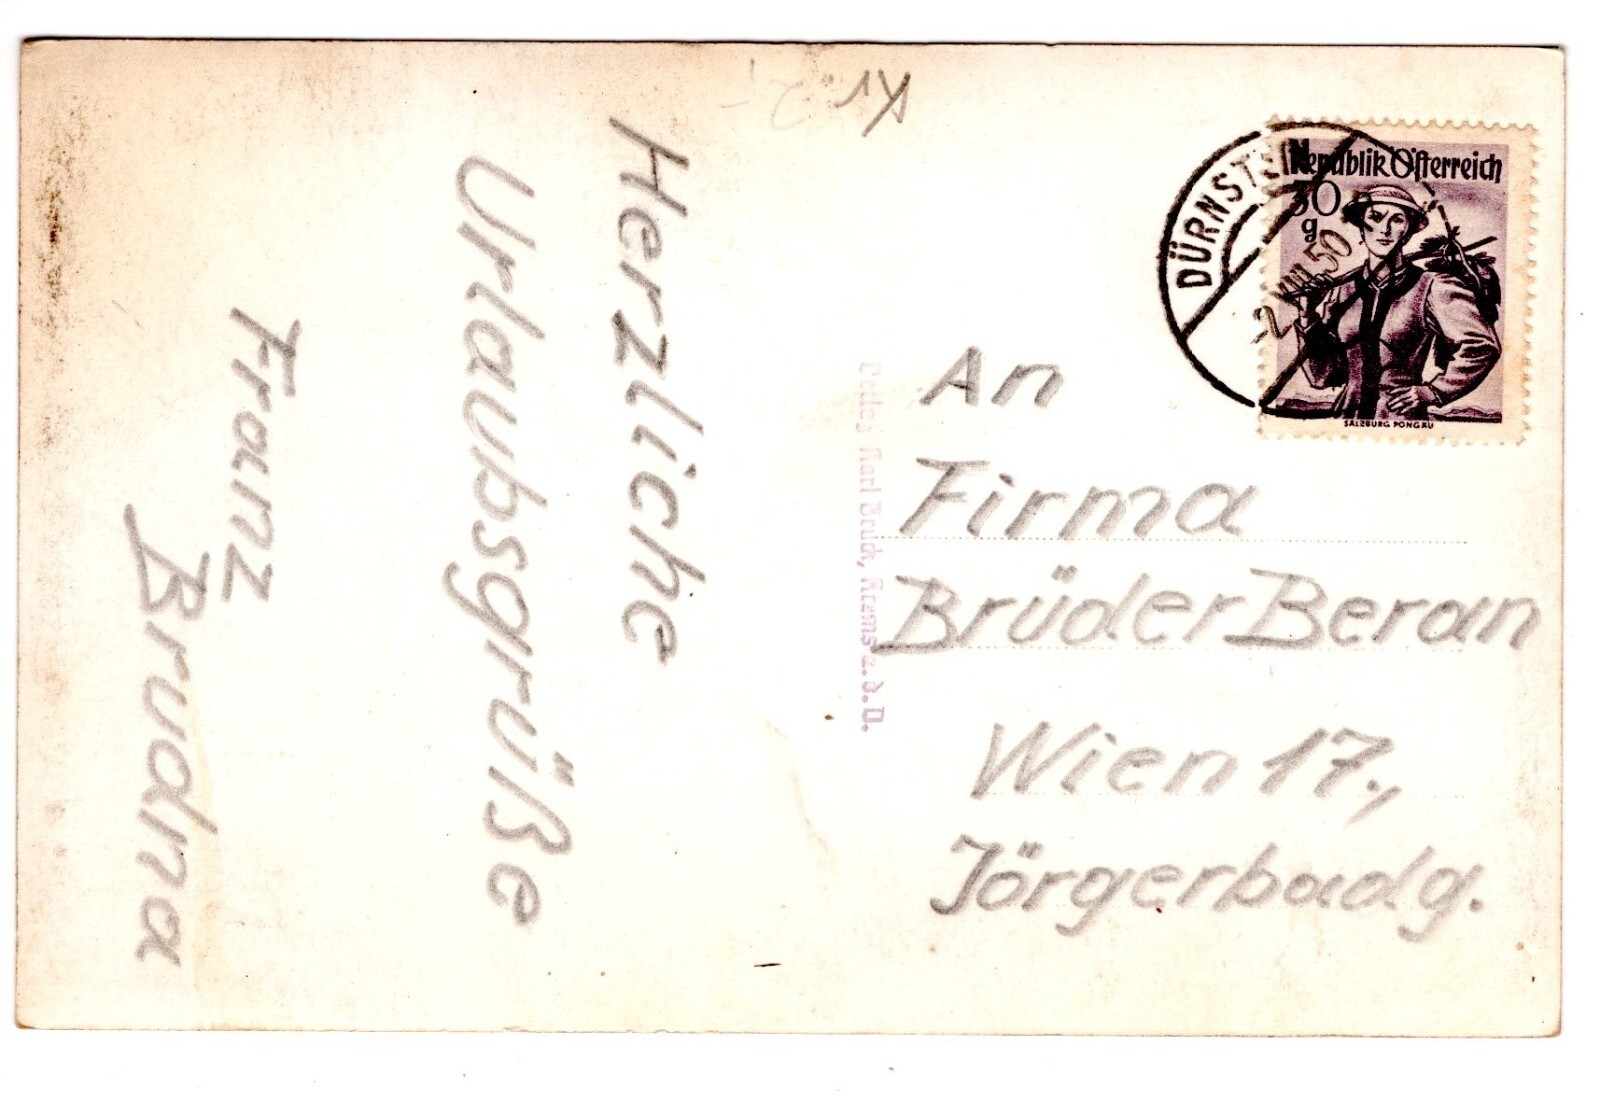 Herzliche
Urlaubsgrüße
Franz
Brudna
Kr 2,-
Verlag Karl Bruck, Krems a. d. D.
DÜRNSTEIN
-2.VIII.50
Republik Österreich
30
g
SALZBURG PONGAU
An
Firma
Brüder Beran
Wien 17.,
Jörgerbadg.